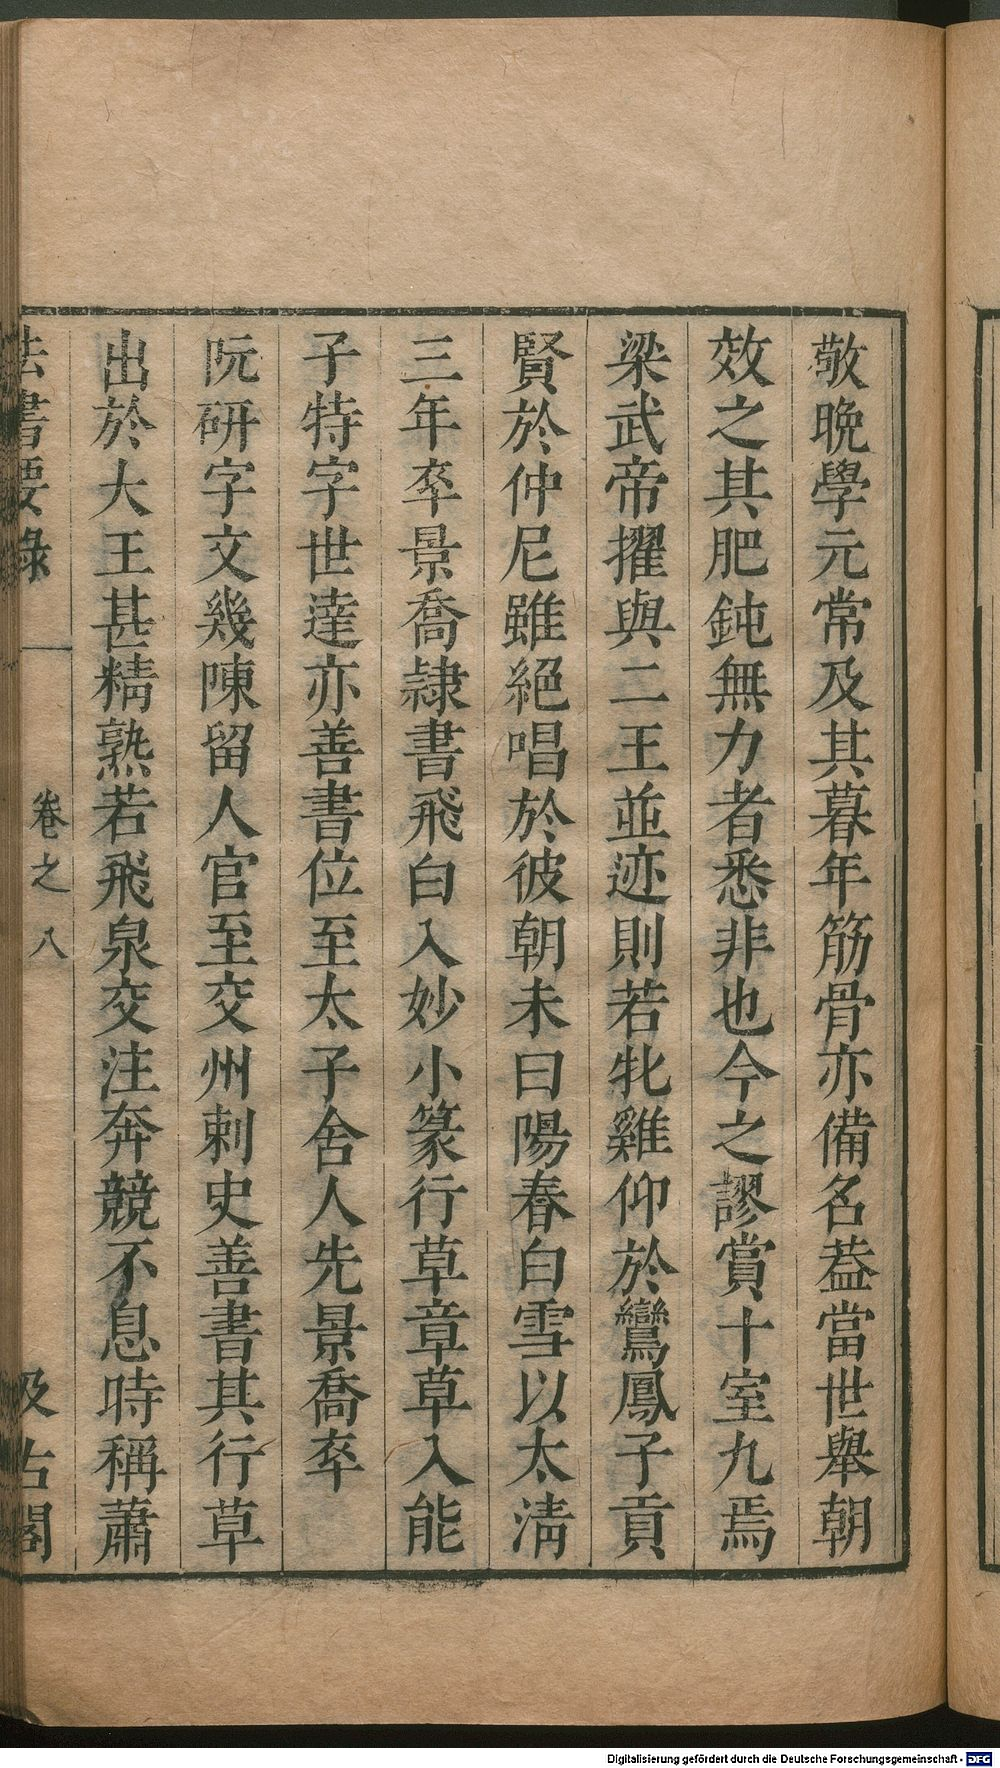 敬晩學元常及其暮年筋骨亦備名葢當世舉朝
效之其肥鈍無力者悉非也今之謬賞十室九焉
梁武帝擢與二王並迹則若牝雞仰於鸞鳳子貢
賢於仲尼雖絕唱於彼朝未曰陽春白雪以太淸
三年卒景喬隷書飛白入妙小篆行草章草入能
子特字世達亦善書位至太子舍人先景喬卒
阮研字文幾陳留人官至交州刺史善書其行草
出於大王甚精熟若飛泉交注奔競不息時稱蕭
法書要錄 卷之八 汲古閣
Digitalisierung gefördert durch die Deutsche Forschungsgemeinschaft - DFG